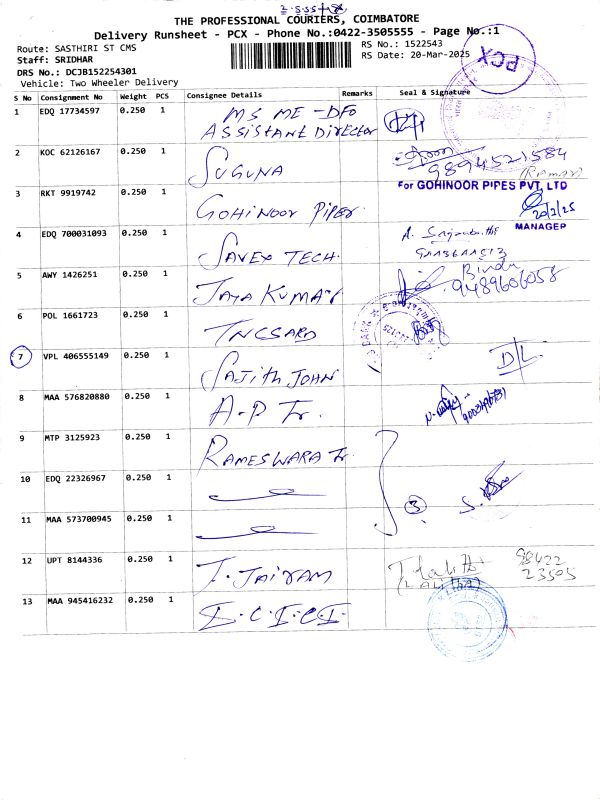 THE PROFESSIONAL COURIERS, COIMBATORE
Delivery Runsheet - PCX - Phone No.:0422-3505555 - Page No.:1
Route: SASTHIRI ST CMS
RS No.: 1522543
Staff: SRIDHAR
RS Date: 20-Mar-2025
DRS No.: DCJB152254301
Vehicle: Two Wheeler Delivery
PCX
S No Consignment No Weight PCS Consignee Details Remarks Seal & Signature
1 EDQ 17734597 0.250 1 MSME-DFO
ASSISTANT DIRECTOR
2 KOC 62126167 0.250 1 SUGUNA 9894521584
(Raman)
3 RKT 9919742 0.250 1 GOHINOOR PIPES
For GOHINOOR PIPES PVT. LTD
20/3/25
MANAGER
4 EDQ 700031093 0.250 1 SAVEX TECH.
5 AWY 1426251 0.250 1 JAYA KUMAR Bindu
9489606058
6 POL 1661723 0.250 1 TNCSARD
7 VPL 406555149 0.250 1 SAJITH JOHN D/L
8 MAA 576820880 0.250 1 A-P Tr.
9 MTP 3125923 0.250 1 RAMESWARA Tr.
10 EDQ 22326967 0.250 1
3
11 MAA 573700945 0.250 1
12 UPT 8144336 0.250 1 T. JAIRAM
(LALITHA)
98422
23505
13 MAA 945416232 0.250 1 I.C.I.C.I.